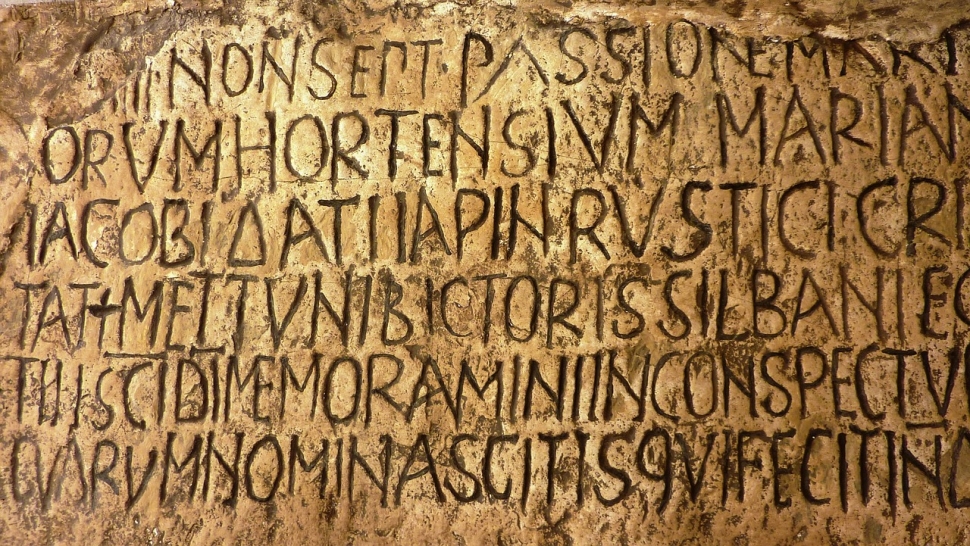 IIII NON SEPT· PASSIONE MARTI
ORVM HORTENSIVM MARIAN
IACOBI DATI IIAPIN RVSTICI CRI
TAT+METTVNI BICTORIS SILBANI EG
TII SCI DI MEMORAMINI IN CONSPECTV
QVARVM NOMINA SCITIS QVI FECIT IN